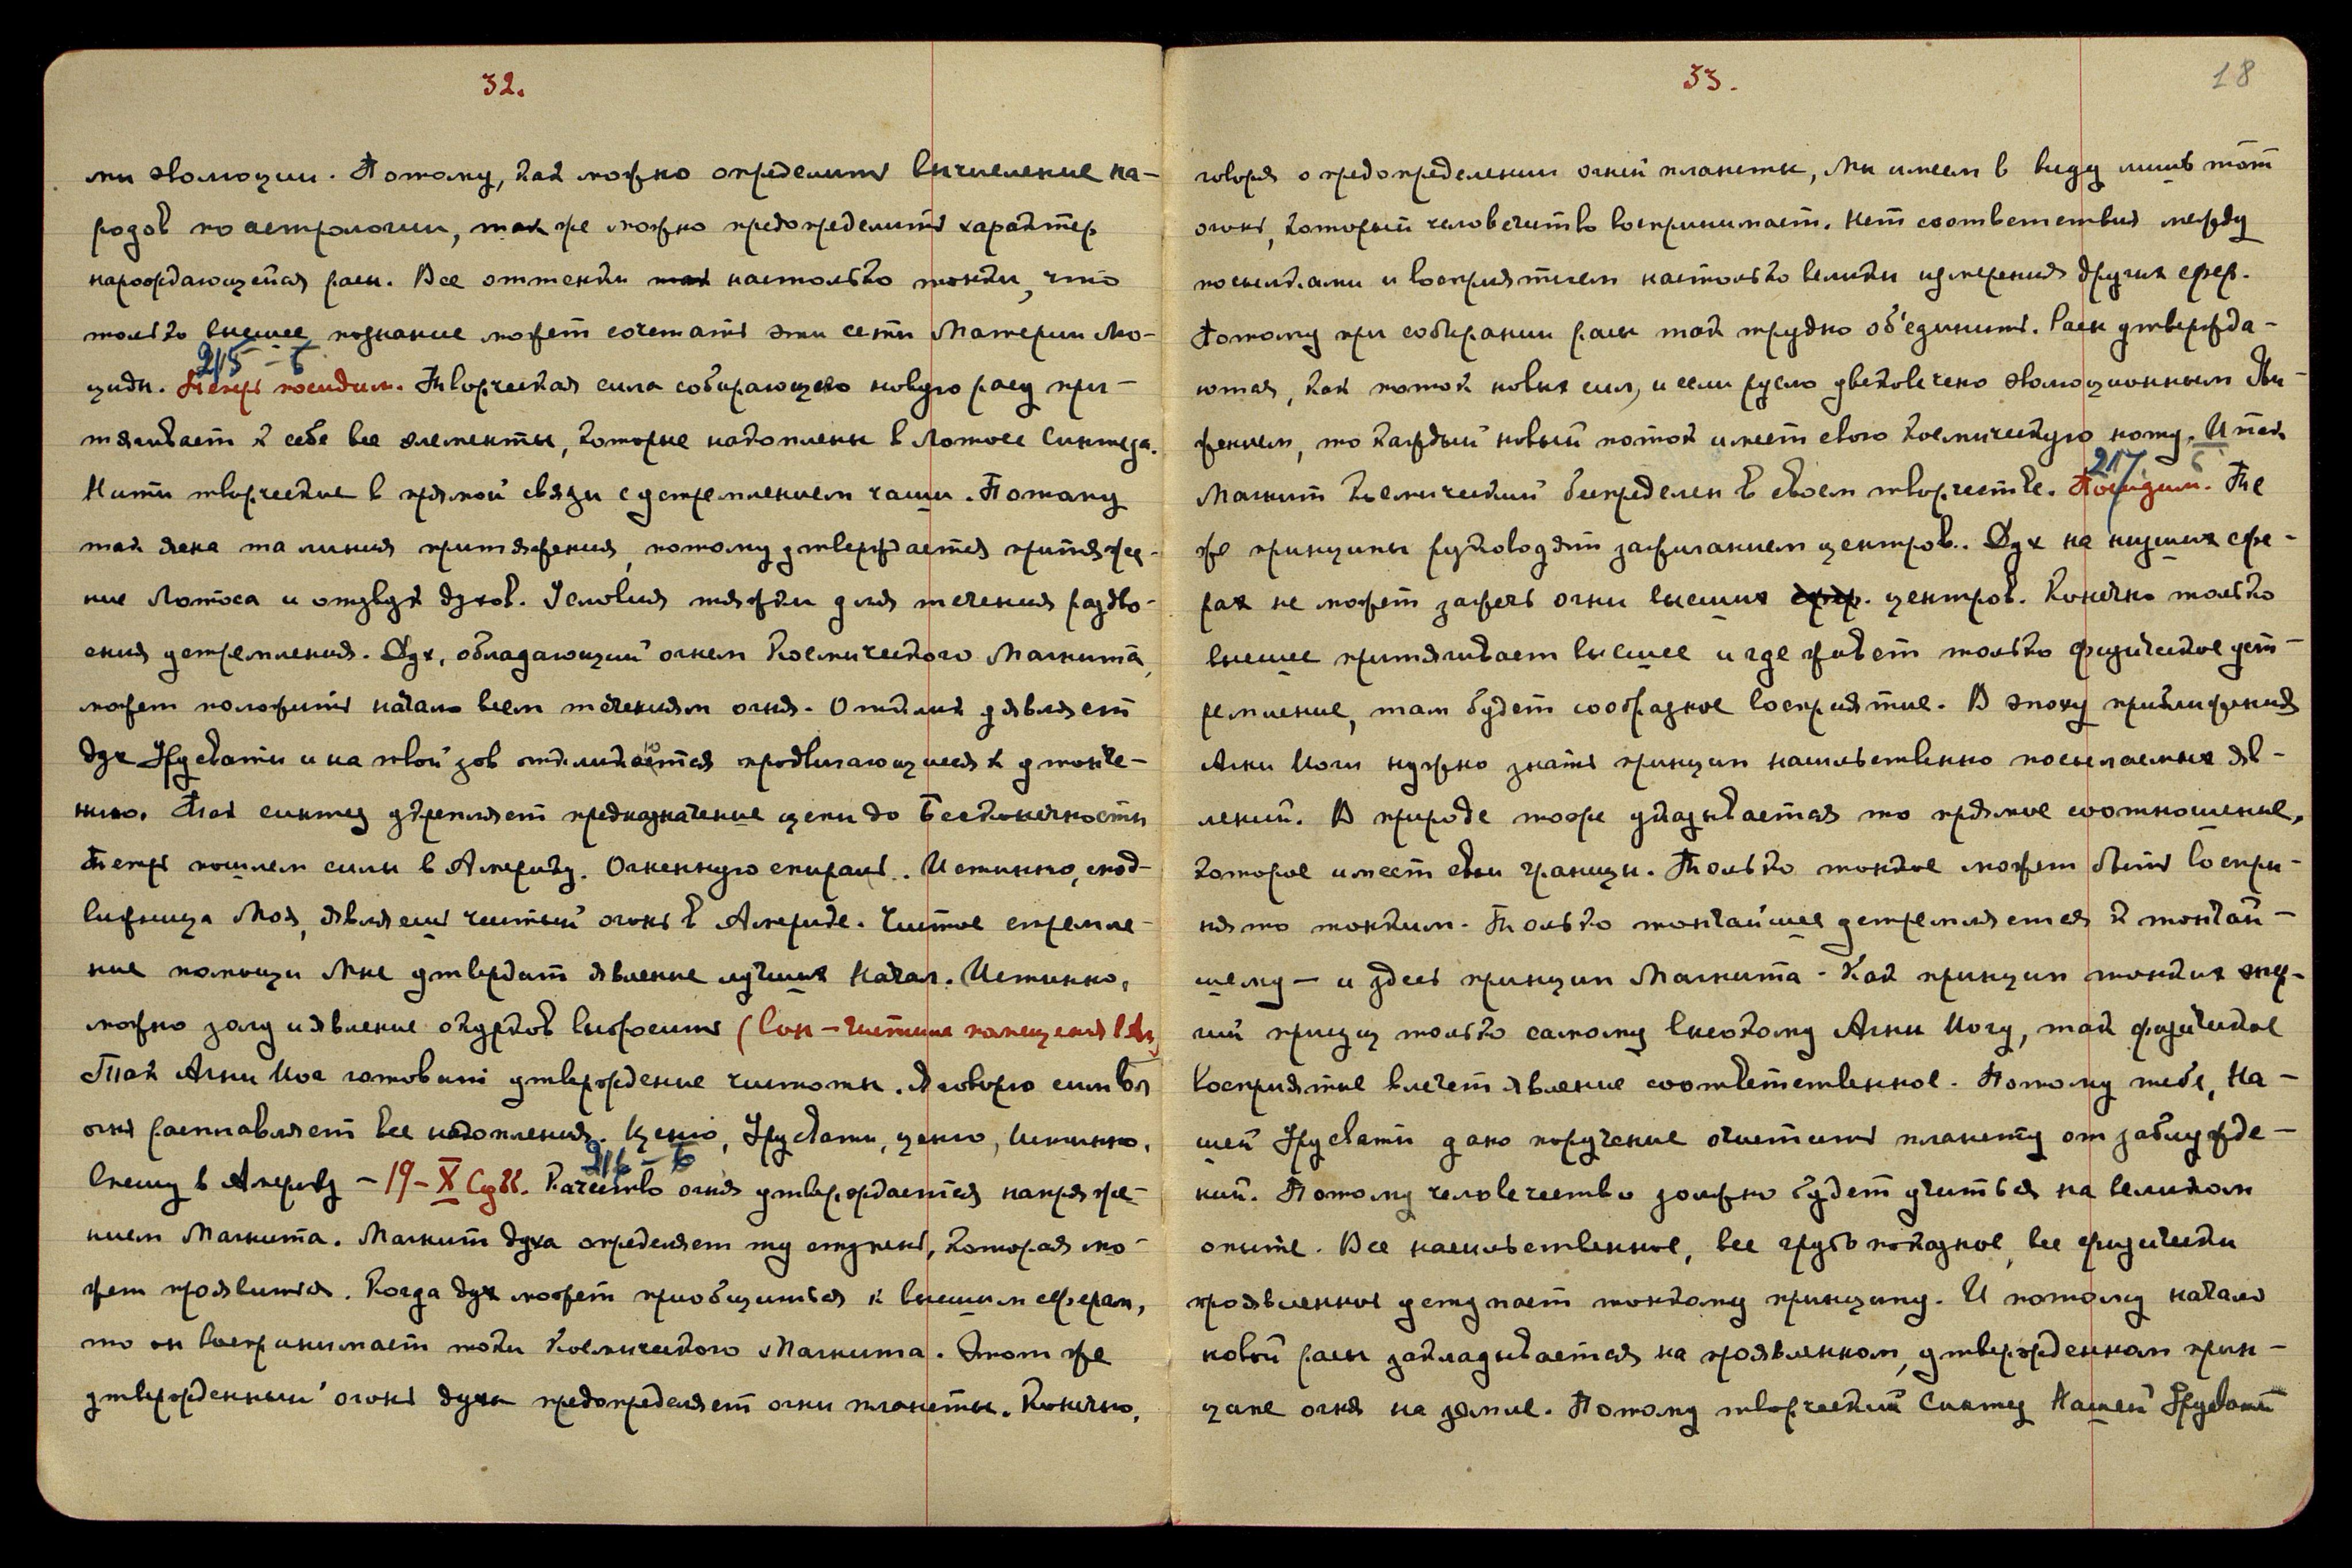 32.
ми эволюции. Потому, как можно определить вычисление на-
родов по астрологии, так же можно предопределить характер
нарождающейся расы. Все оттенки так настолько тонки, что
только высшее познание может сочетать эти сети Материи Лю-
циды. Теперь посидим. Творческая сила собирающего новую расу при-
215 – б
тягивает к себе все элементы, которые накоплены в Лотосе Синтеза.
Нити творческие в прямой связи с устремлением чаши. Потому
так ясна та линия притяжения, потому утверждается притяже-
ние Лотоса и отзвук духов. Условия тяжки для течения раздво-
ения устремления. Дух, обладающий огнем Космического Магнита,
может положить начало всем течениям огня. Отклик уявляет
дух Урусвати и на твой зов откликаются продвигающиеся к утонче-
нию. Так синтез укрепляет предназначение цепи до Бесконечности
Теперь пошлем силы в Америку. Огненную спираль. Истинно, спод-
вижница Моя, являешь чистый огонь в Америке. Чистое стремле-
ние помощи Мне утвердит явление лучших Начал. Истинно,
можно золу и явление окурков выбросить (сон – чистише помещения
Так Агни Йог готовит утверждение чистоты. Я говорю символ
огня расплавляет все накопления. Ценю, Урусвати, ценю, Истинно,
спешу в Америку – 19 – X Субб. Качество огня утверждается напряже-
216 – б
нием Магнита. Магнит духа определяет ту ступень, которая мо-
жет проявиться. Когда дух может приобщиться к высшим сферам,
то он воспринимает токи Космического Магнита. Этот же
утвержденный огонь духа предопределяет огни планеты. Конечно,
33.
18
говоря о предопределении огней планеты, Мы имеем в виду лишь тот
огонь, который человечество воспринимает. Нет соответствия между
посылками и восприятием настолько велики измерения других сфер.
Потому при собирании расы так трудно об'единить. Расы утвержда-
ются, как поток новых сил, и если русло увековечено эволюционным дви-
жением, то каждый новый поток имеет свою космическую ноту. Итак
Магнит Космический беспределен в своем творчестве. Посидим. Те
217 б
же принципы руководят зажиганием центров. Дух на низших сфе-
рах не может зажечь огни высших сфер. центров. Конечно только
высшее притягивает высшее и где живет только физическое уст-
ремление, там будет сообразное восприятие. В эпоху приближения
Агни Йоги нужно знать принцип насильственно посылаемых яв-
лений. В природе тоже указывается то прямое соотношение,
которое имеет свои границы. Только тонкое может быть воспри-
нято тонким. Только тончайшее устремляется к тончай-
шему – и здесь принцип Магнита. Как принцип тонких энер-
гий присущ только самому высокому Агни Йогу, так физическое
восприятие влечет явление соответственное. Потому тебе, На-
шей Урусвати дано поручение очистить планету от заблужде-
ний. Потому человечество должно будет учиться на великом
опыте. Все насильственное, все грубо показное, все физически
проявленное уступает тонкому принципу. И потому начало
новой расы закладывается на проявленном, утвержденном прин-
ципе огня на земле. Потому творческий Синтез Нашей Урусвати